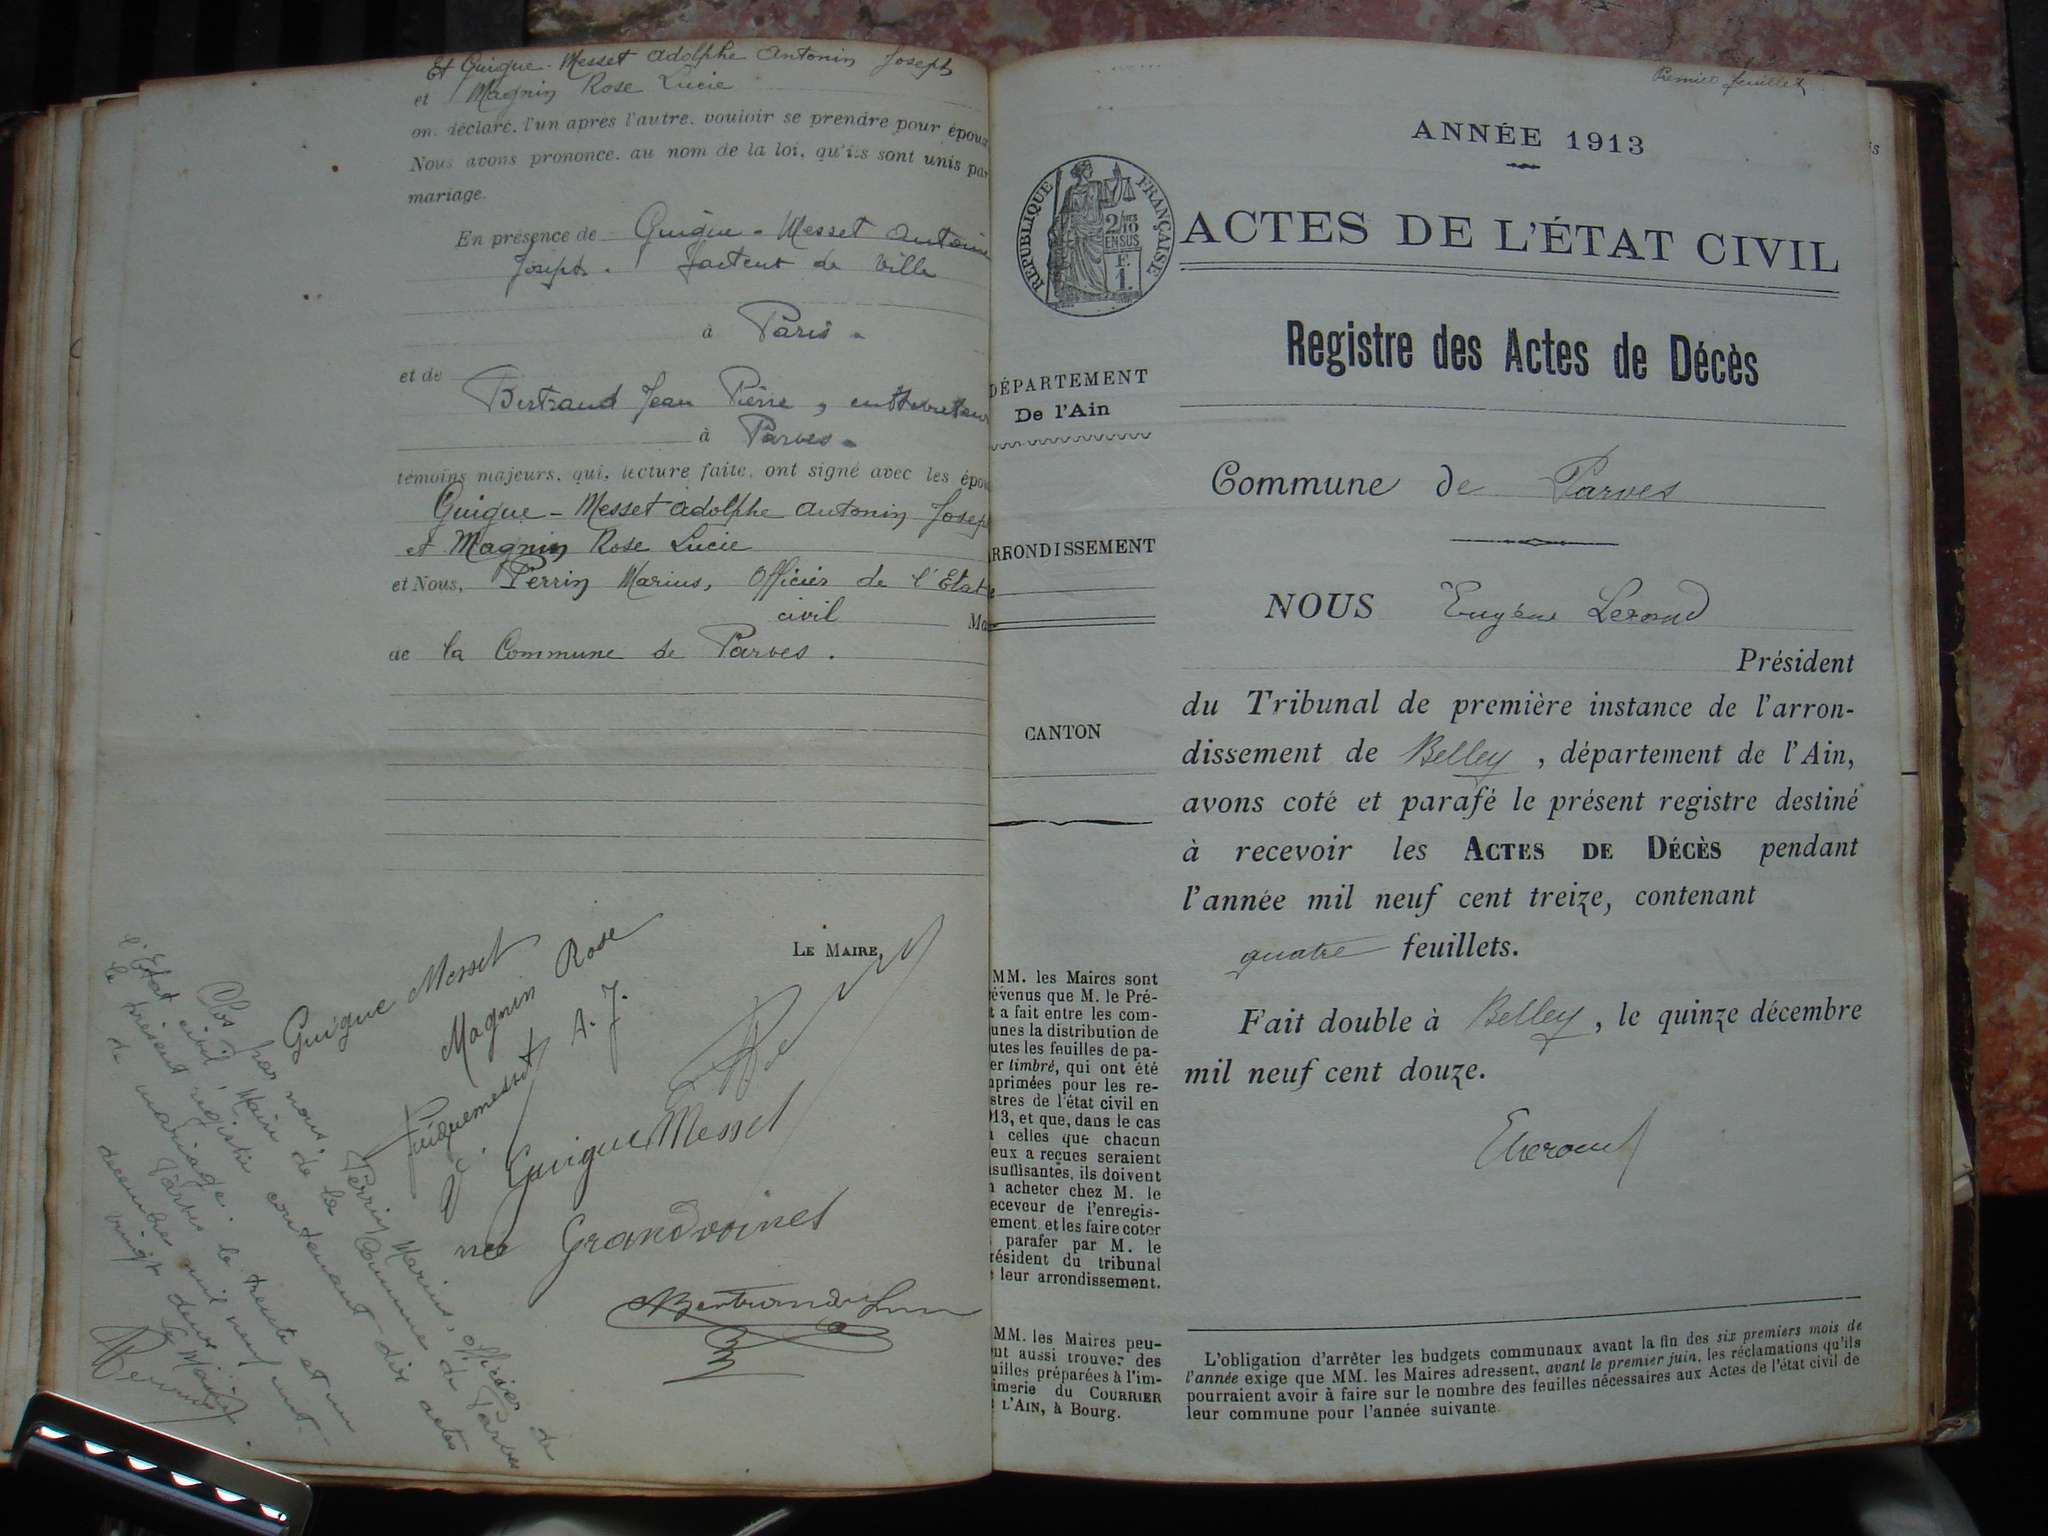 Et Guigue-Messet Adolphe Antonin Joseph
et Magnin Rose Lucie
on. déclaré. l'un après l'autre. vouloir se prendre pour époux
Nous avons prononcé. au nom de la loi, qu'ils sont unis par
mariage.
En présence de Guigue-Messet Antoine
Joseph. facteur de ville
à Paris.
et de
Bertrand Jean Pierre,
à Parves.
témoins majeurs. qui, lecture faite. ont signé avec les épou
Guigue-Messet Adolphe Antonin Joseph
et Magnin Rose Lucie
et Nous, Perrin Marius, Officier de l'Etat
civil Ma
de la Commune de Parves.
LE MAIRE,
Guigue Messet
Magnin Rose
Guiguemesset A. J.
Guigue Messet
née Grandvoinet
Clos par nous Perrin Marius, officier de
l'Etat civil, Maire de la Commune de Parves
le présent registre contenant dix actes
de mariage.
Parves le trente et un
décembre mil neuf cent
vingt deux
Le Maire
Premier feuillet
ANNÉE 1913
RÉPUBLIQUE FRANÇAISE
2/10
EN SUS
F.
1.
ACTES DE L'ÉTAT CIVIL
Registre des Actes de Décès
DÉPARTEMENT
De l'Ain
RRONDISSEMENT
CANTON
Commune de Parves
NOUS Eugène
Président
du Tribunal de première instance de l'arron-
dissement de Belley, département de l'Ain,
avons coté et parafé le présent registre destiné
à recevoir les ACTES DE DÉCÈS pendant
l'année mil neuf cent treize, contenant
quatre feuillets.
Fait double à Belley, le quinze décembre
mil neuf cent douze.
MM. les Maires sont
évenus que M. le Pré-
t a fait entre les com-
unes la distribution de
utes les feuilles de pa-
er timbré, qui ont été
primées pour les re-
stres de l'état civil en
13, et que, dans le cas
celles que chacun
eux a reçues seraient
suffisantes, ils doivent
acheter chez M. le
eceveur de l'enregis-
ement et les faire coter
parafer par M. le
résident du tribunal
leur arrondissement.
MM. les Maires peu-
nt aussi trouver des
uilles préparées à l'im-
imerie du COURRIER
L'AIN, à Bourg.
L'obligation d'arrêter les budgets communaux avant la fin des six premiers mois de
l'année exige que MM. les Maires adressent, avant le premier juin, les réclamations qu'ils
pourraient avoir à faire sur le nombre des feuilles nécessaires aux Actes de l'état civil de
leur commune pour l'année suivante.